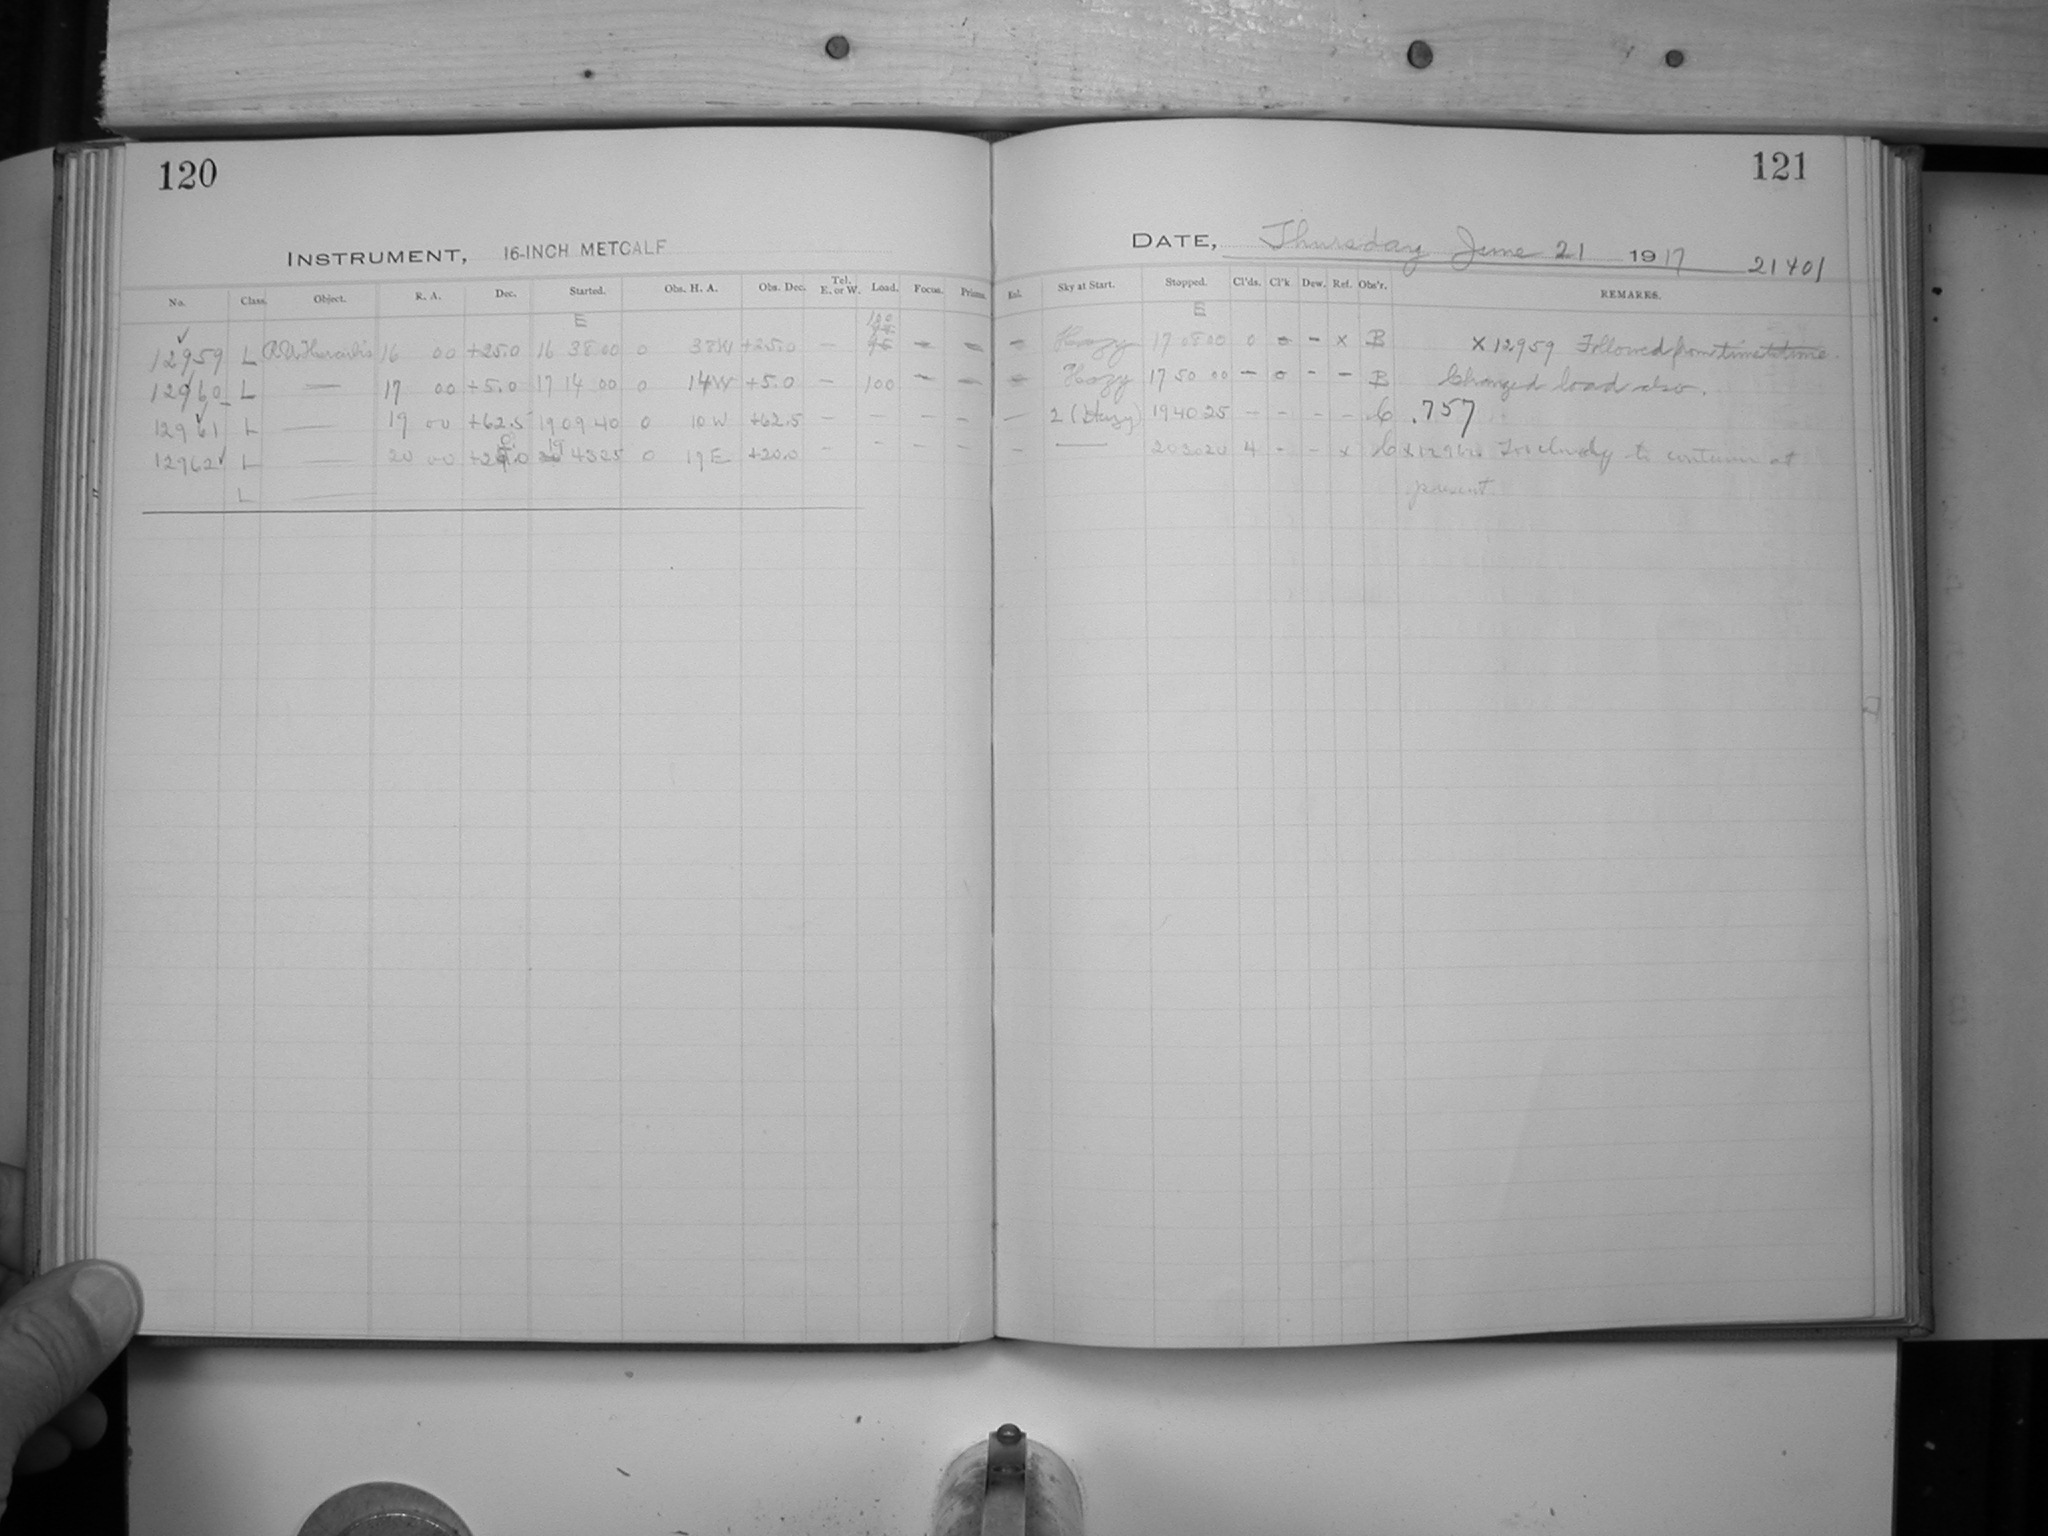 120
121
INSTRUMENT, 16-INCH METCALF
DATE, Thursday June 21 1917 21401
No. Class. Object. R. A. Dec. Started. Obs. H. A. Obs. Dec. Tel. E. or W. Load. Focus. Prisms. Enl. Sky at Start. Stopped. Cl'ds. Cl'k Dew. Ref. Obs'r. REMARKS.
E 100 E
12959 L 16 00 +25.0 16 38 00 0 38W +25.0 — 95 — — — Hazy 17 08 00 0 0 - x B x 12959 Followed from time to time.
12960 L — 17 00 +5.0 17 14 00 0 14W +5.0 — 100 — — — Hazy 17 50 00 — 0 - — B Changed load also.
12961 L — 19 00 +62.5 19 09 40 0 10W +62.5 — — — — — 2 (Hazy) 19 40 25 — — - — C .757
12962 L — 20 00 +20.0 19 43 25 0 19E +20.0 — — — — — — 20 30 20 4 - - x C x 12962 Too cloudy to continue at
L — present.